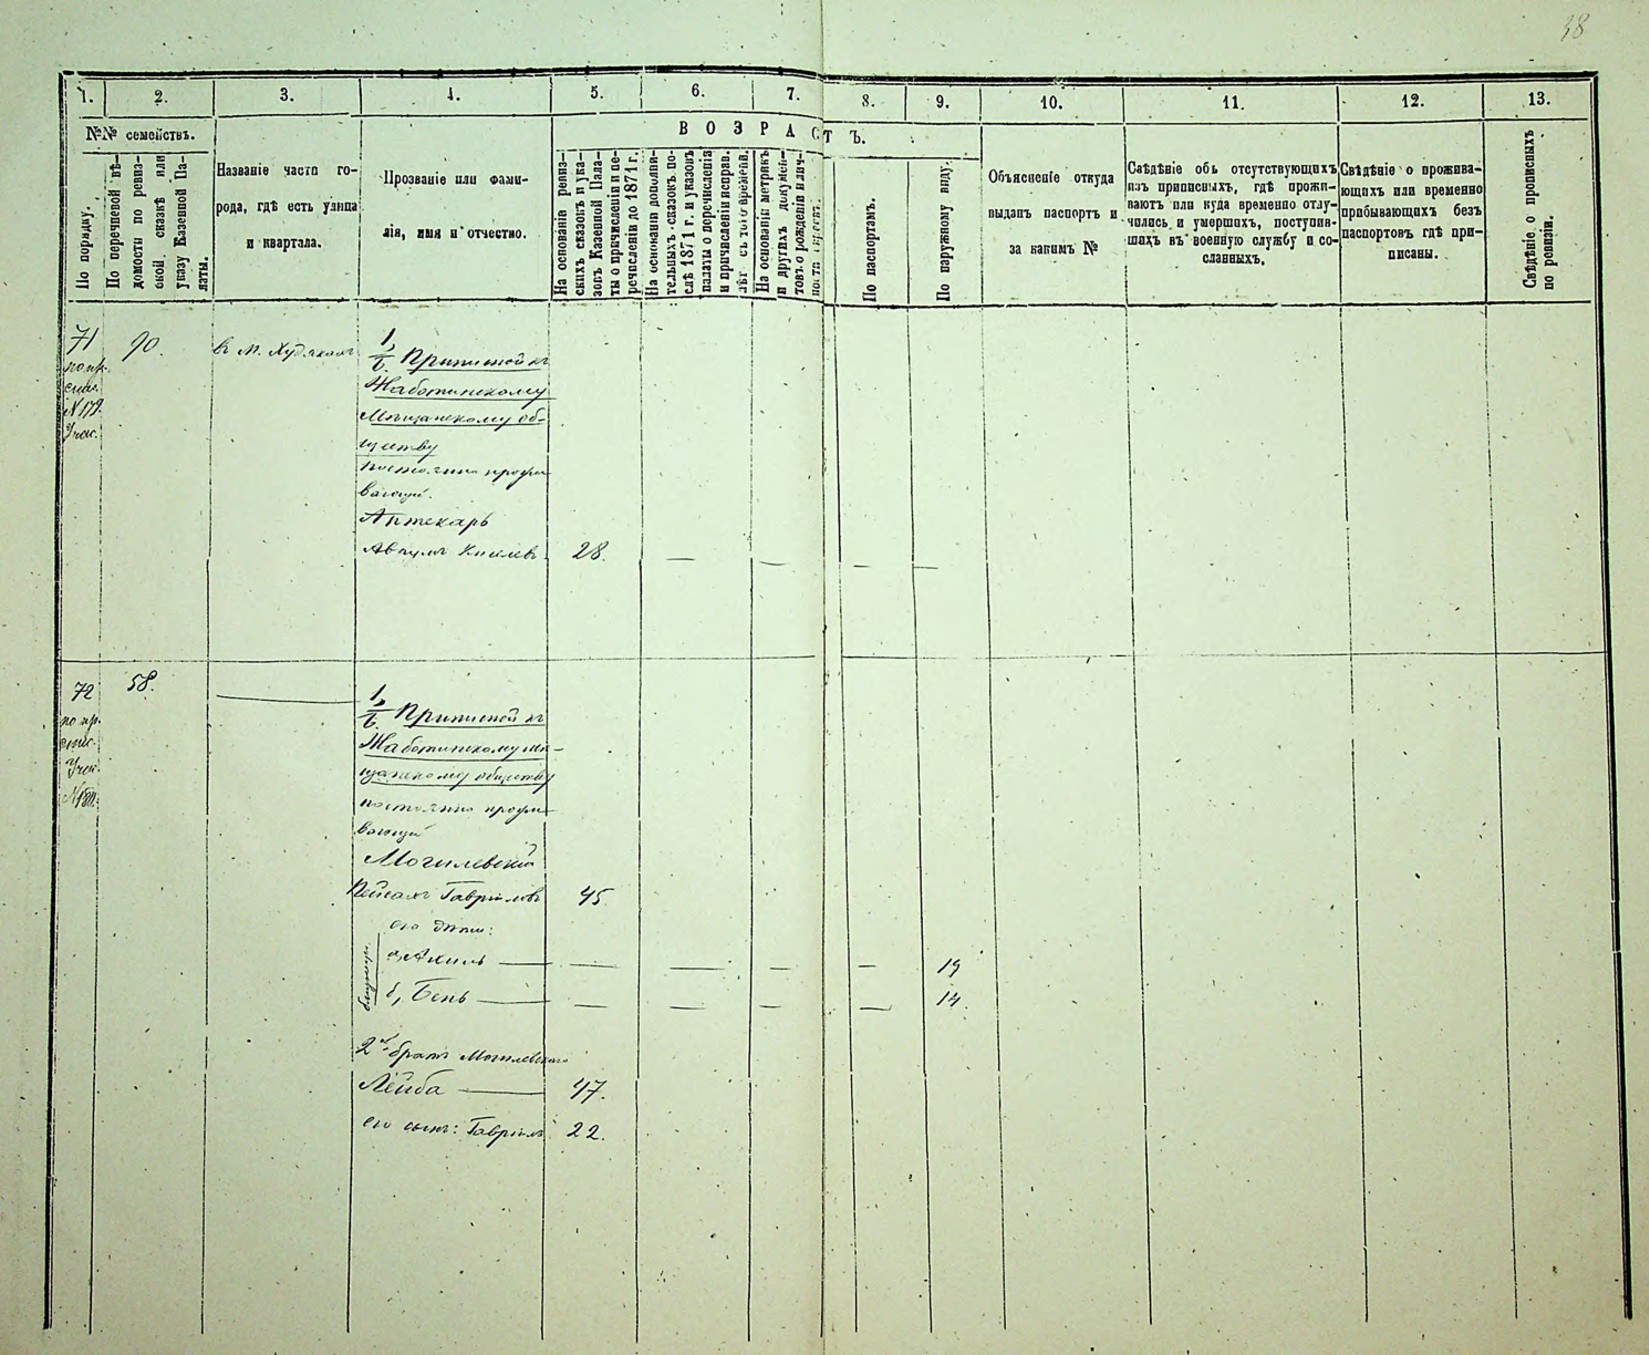 38
1. 2. 3. 4. 5. 6. 7. 8. 9. 10. 11. 12. 13.
№№ семействъ.
По порядку.
По перечневой вѣ-
домости по ревиз-
ской сказкѣ или
указу Казенной Па-
латы.
Названіе части го-
рода, гдѣ есть улица
и квартала.
Прозваніе или фами-
лія, имя и отчество.
ВОЗРАСТЪ.
На основаніи ревиз-
скихъ сказокъ и ука-
зовъ Казенной Пала-
ты о причисленіи и пе-
речисленіи до 1871 г.
На основаніи дополни-
тельныхъ сказокъ по-
слѣ 1871 г. и указовъ
палаты о перечисленіи
и причисленіи исправ.
лѣт съ того времени.
На основаніи метрикъ
и другихъ докумен-
товъ о рожденіи и лич-
По паспортамъ.
По наружному виду.
Объясненіе откуда
выданъ паспортъ и
за какимъ №
Свѣдѣніе объ отсутствующихъ
изъ приписныхъ, гдѣ прожи-
ваютъ или куда временно отлу-
чились и умершихъ, поступив-
шихъ въ военную службу и со-
сланныхъ.
Свѣдѣніе о прожива-
ющихъ или временно
прибывающихъ безъ
паспортовъ гдѣ при-
писаны.
Свѣдѣніе о прописныхъ
по ревизіи.
71
по пр.
спис.
N 179.
Учас.
90.
въ м.
1/6. Приписной къ
Жаботинскому
Мѣщанскому об-
ществу
постоянно прожи
вающій.
Аптекарь
28.
72
по пр.
спис.
Учас.
N 180.
58.
1/6. Приписной къ
Жаботинскому мѣ-
щанскому обществу
постоянно прожи
вающій
Могилевскій
Пейсахъ Гавріиловъ 45.
его дѣти:
близнецы
а, Ахиль 19
б, Бень 14.
2й братъ Могилевскаго
Лейба 47.
его сынъ: Гавріилъ 22.